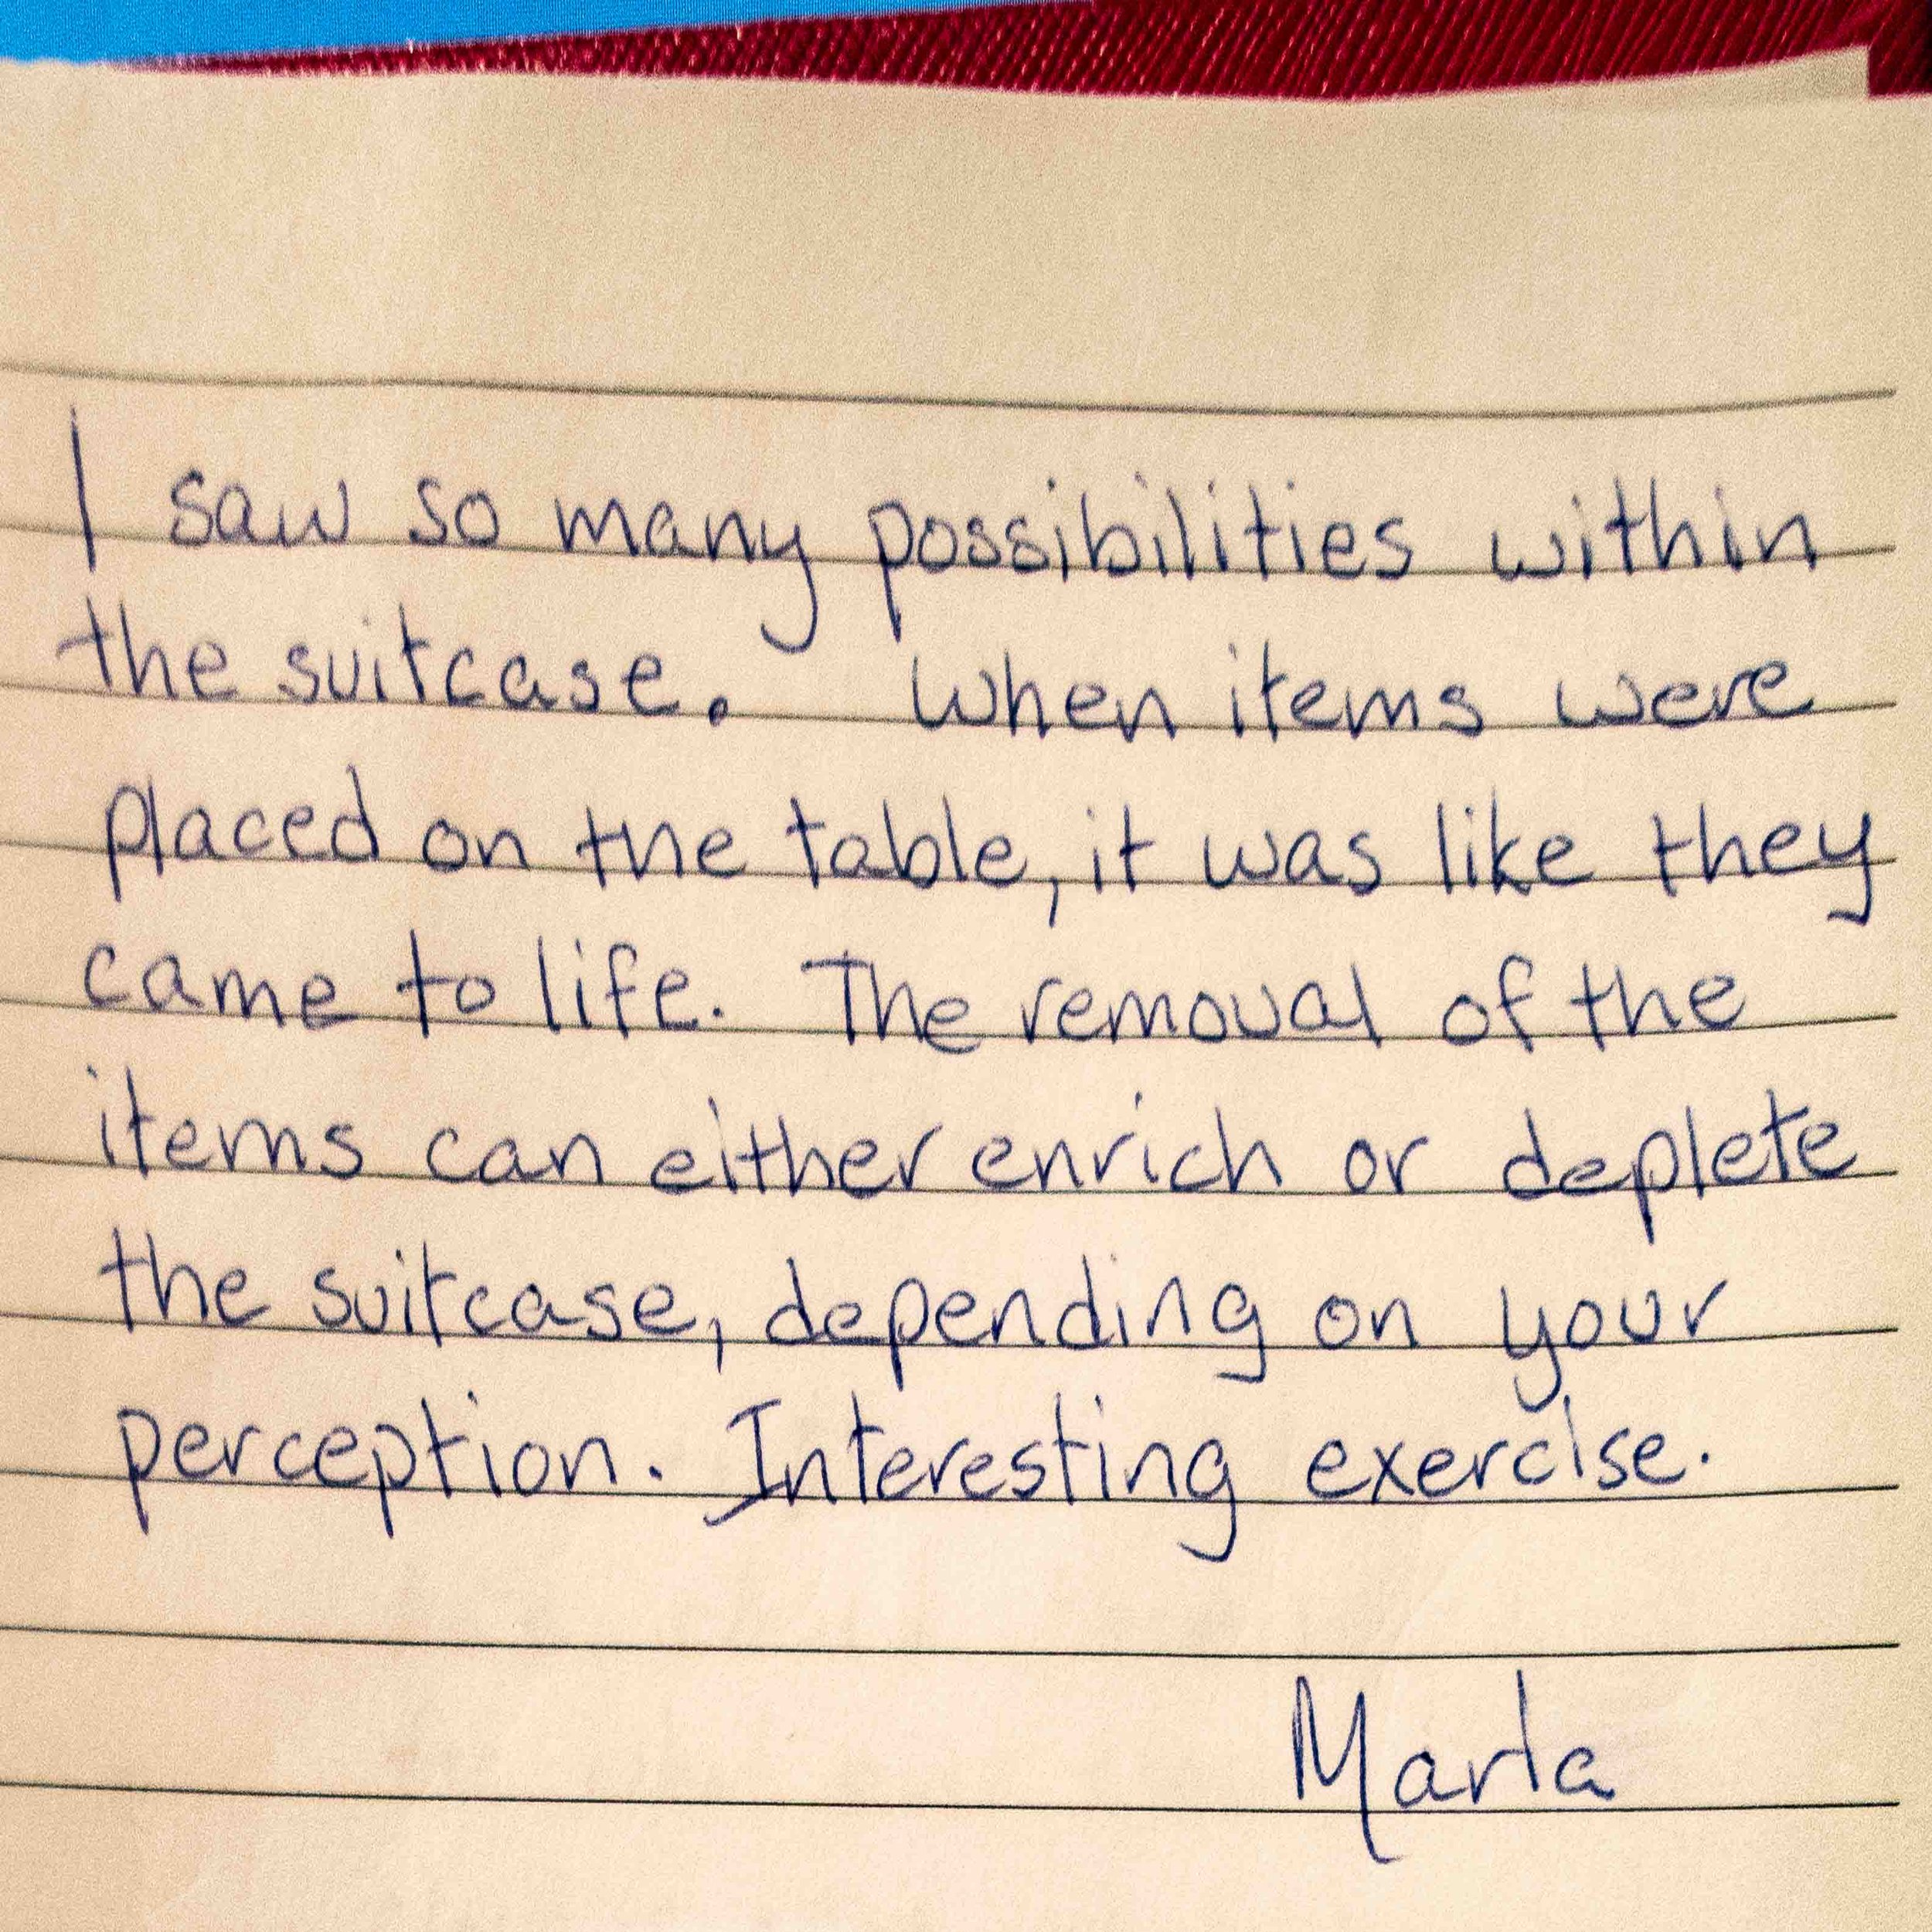 I saw so many possibilities within
the suitcase. When items were
placed on the table, it was like they
came to life. The removal of the
items can either enrich or deplete
the suitcase, depending on your
perception. Interesting exercise.
Marla